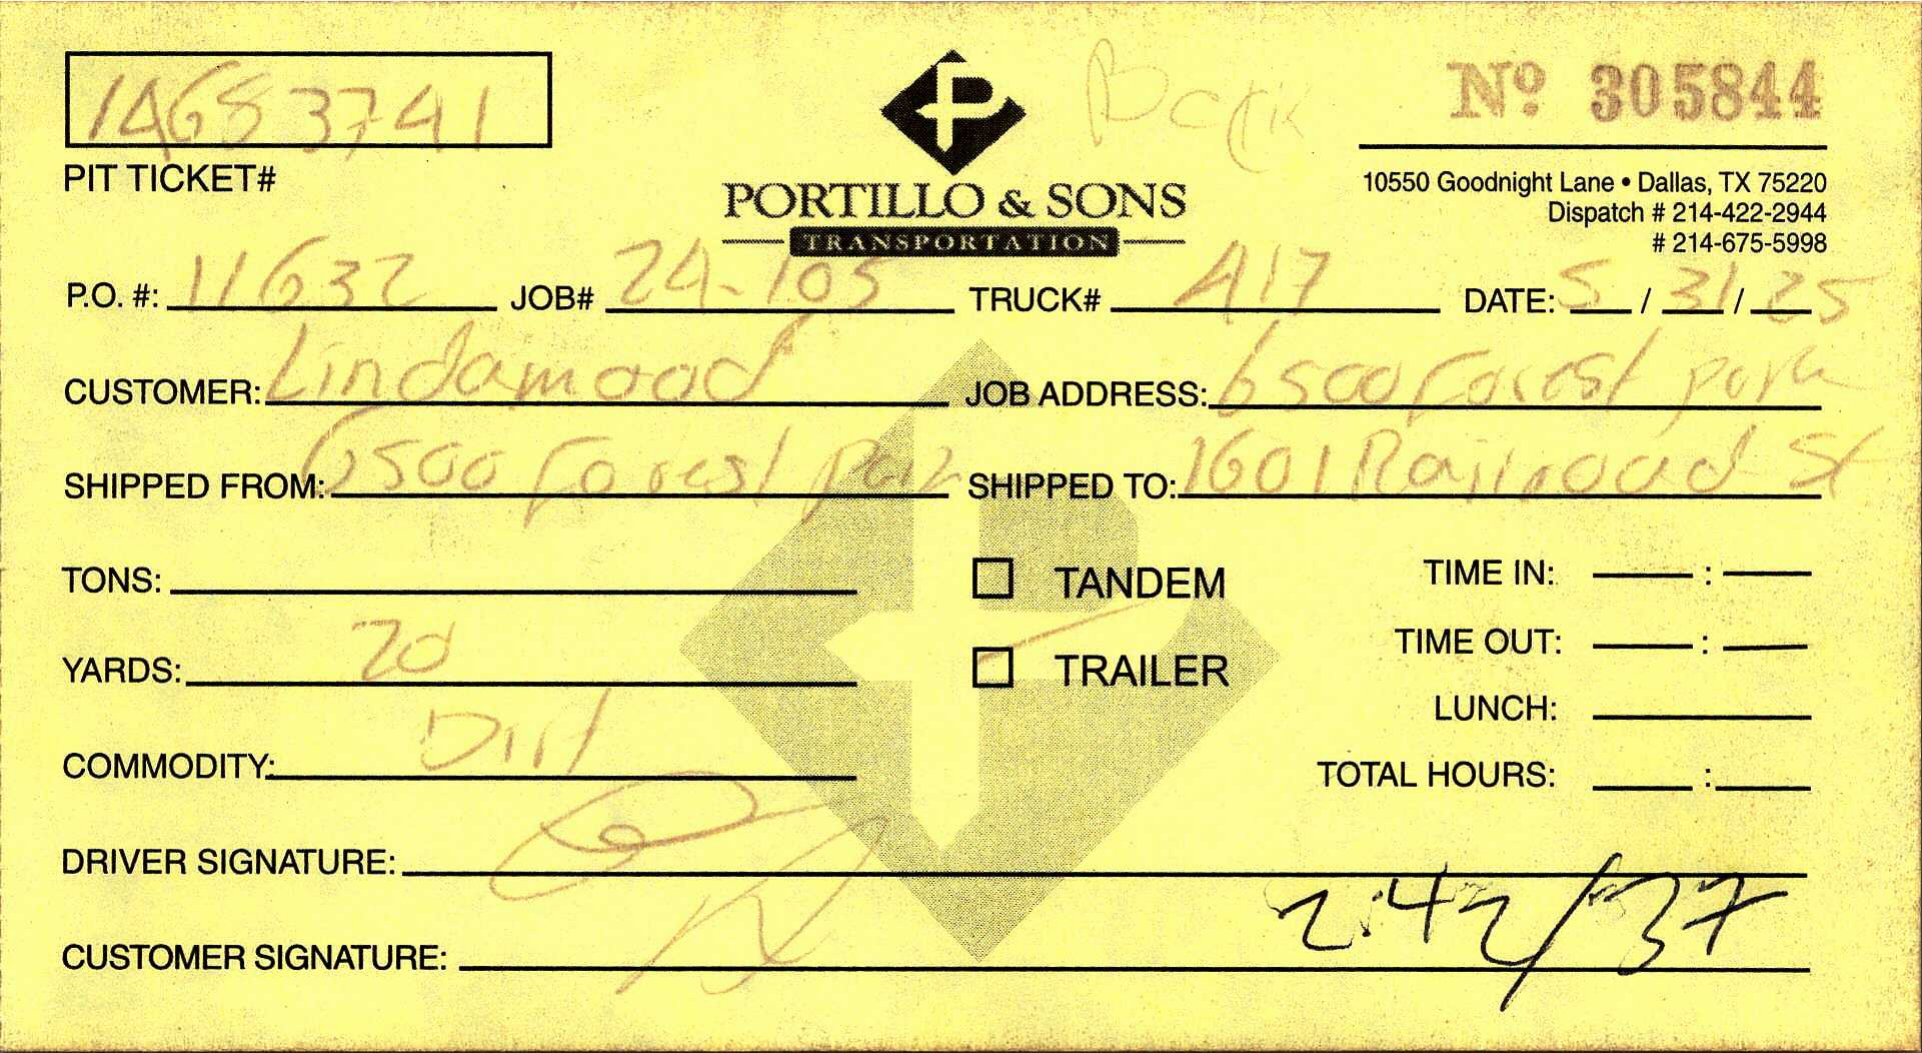 14653741
PIT TICKET#
PORTILLO & SONS
TRANSPORTATION
Nº 305844
10550 Goodnight Lane • Dallas, TX 75220
Dispatch # 214-422-2944
# 214-675-5998
P.O. #: 11632 JOB# 24-105 TRUCK# A17 DATE: 5 / 31 / 25
CUSTOMER: Lindamood JOB ADDRESS: 6500 Forest park
SHIPPED FROM: 6500 Forest Park SHIPPED TO: 1601 Railroad St
TONS: TANDEM TIME IN: :
YARDS: 20 TRAILER TIME OUT: :
LUNCH:
COMMODITY: Dirt TOTAL HOURS: :
DRIVER SIGNATURE:
2:42/37
CUSTOMER SIGNATURE: